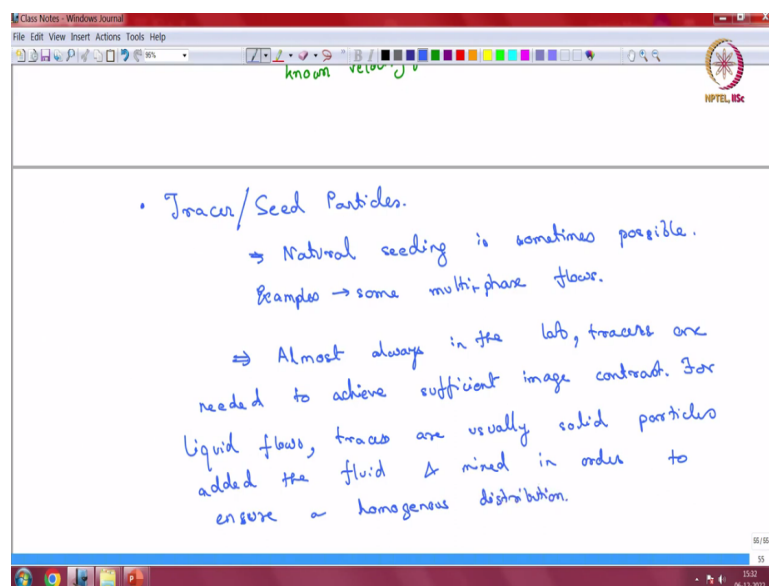 Class Notes - Windows Journal
File Edit View Insert Actions Tools Help
95%
B I
NPTEL, IISc
known
• Tracer/Seed Particles.
⇒ Natural seeding is sometimes possible.
Examples → some multi-phase flows.
⇒ Almost always in the lab, tracers are
needed to achieve sufficient image contrast. For
liquid flows, traces are usually solid particles
added the fluid & mixed in order to
ensure a homogenous distribution.
55/55
55
15:32